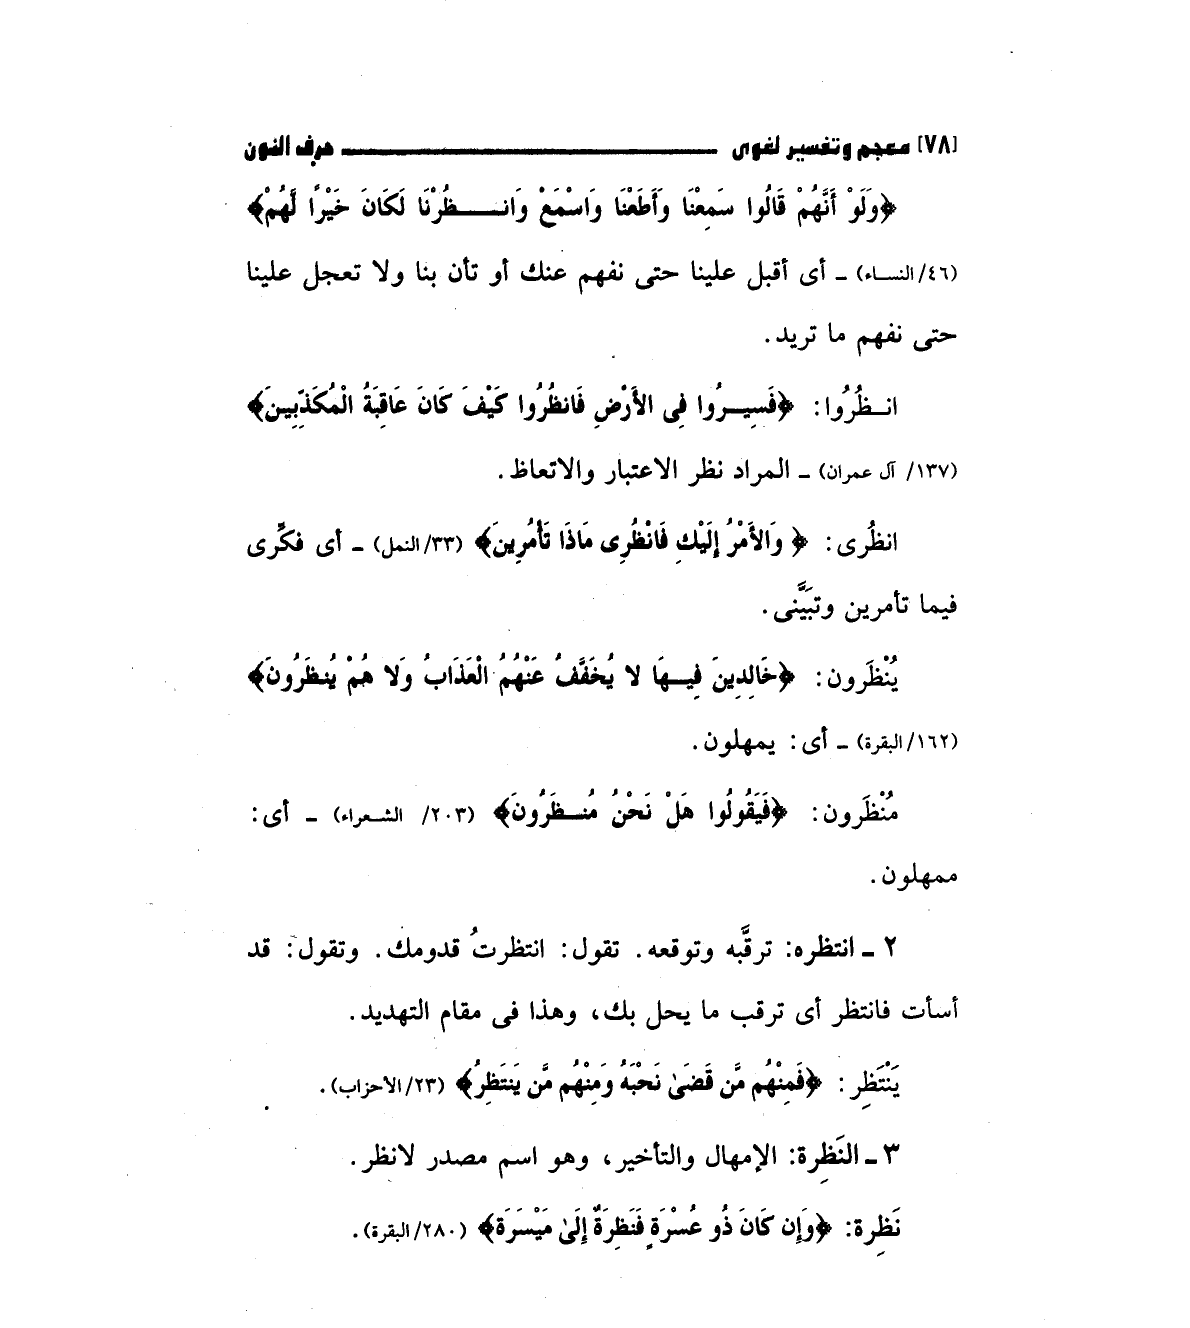 [٧٨] معجم وتفسير لغوى ـــــــــــ حرف النون
﴿وَلَوْ أَنَّهُمْ قَالُوا سَمِعْنَا وَأَطَعْنَا وَاسْمَعْ وَانـــظُرْنَا لَكَانَ خَيْرًا لَّهُمْ﴾
(٤٦/النساء) ـ أى أقبل علينا حتى نفهم عنك أو تأن بنا ولا تعجل علينا
حتى نفهم ما تريد.
انـظُرُوا: ﴿فَسِيـرُوا فِى الأَرْضِ فَانظُرُوا كَيْفَ كَانَ عَاقِبَةُ الْمُكَذِّبِينَ﴾
(١٣٧/ آل عمران) ـ المراد نظر الاعتبار والاتعاظ.
انظُرى: ﴿ وَالأَمْرُ إِلَيْكِ فَانْظُرِى مَاذَا تَأْمُرِينَ﴾ (٣٣/النمل) ـ أى فكِّرى
فيما تأمرين وتبَيَّنى.
يُنْظَرون: ﴿خَالِدِينَ فِيـهَا لا يُخَفَّفُ عَنْهُمُ الْعَذَابُ وَلا هُمْ يُنظَرُونَ﴾
(١٦٢/البقرة) ـ أى: يمهلون.
مُنْظَرون: ﴿فَيَقُولُوا هَلْ نَحْنُ مُنـظَرُونَ﴾ (٢٠٣/ الشعراء) ـ أى:
ممهلون.
٢ ـ انتظره: ترقَّبه وتوقعه. تقول: انتظرتُ قدومك. وتقول: قد
أسأت فانتظر أى ترقب ما يحل بك، وهذا فى مقام التهديد.
يَنْتَظِر: ﴿فَمِنْهُم مَّن قَضَىٰ نَحْبَهُ وَمِنْهُم مَّن يَنتَظِرُ﴾ (٢٣/الأحزاب).
٣ ـ النَظِرة: الإمهال والتأخير، وهو اسم مصدر لانظر.
نَظِرة: ﴿وَإِن كَانَ ذُو عُسْرَةٍ فَنَظِرَةٌ إِلَىٰ مَيْسَرَة﴾ (٢٨٠/البقرة).